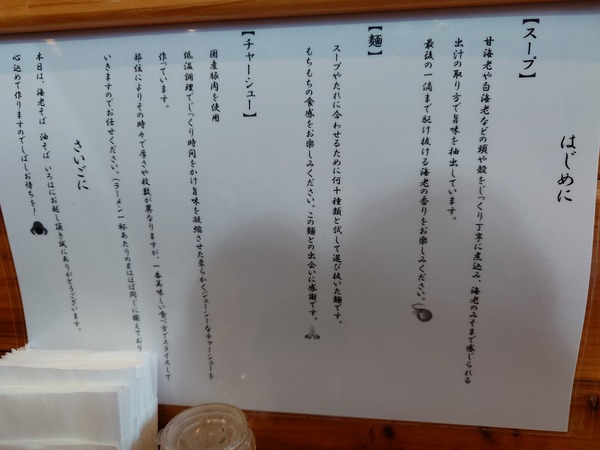 はじめに
【スープ】
甘海老や白海老などの頭や殻をじっくり丁寧に煮込み、海老のみそまで感じられる
出汁の取り方で旨味を抽出しています。
最後の一滴まで駆け抜ける海老の香りをお楽しみください。
【麺】
スープやたれに合わせるために何十種類と試して選び抜いた麺です。
もちもちの食感をお楽しみください。この麺との出会いに感謝です。
【チャーシュー】
国産豚肉を使用
低温調理でじっくり時間をかけ旨味を凝縮させた柔らかくジューシーなチャーシューを
作っています。
部位によりその時々で厚さや枚数が異なりますが、一番美味しい食べ方でスライスして
いきますのでお任せください。(ラーメン一杯あたりのgはほぼ同じに揃えており
さいごに
本日は、海老そば 油そば いろはにお越し頂き誠にありがとうございます。
心込めて作りますのでしばしお待ちを!